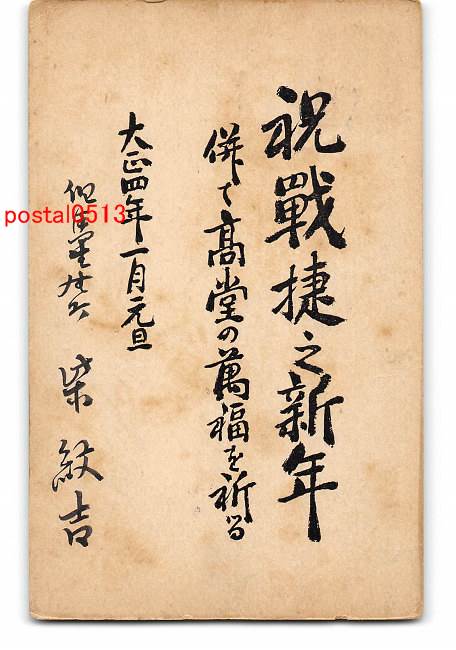 祝戰捷之新年
併て高堂の萬福を祈る
大正四年一月元旦
柴紋吉
postal0513